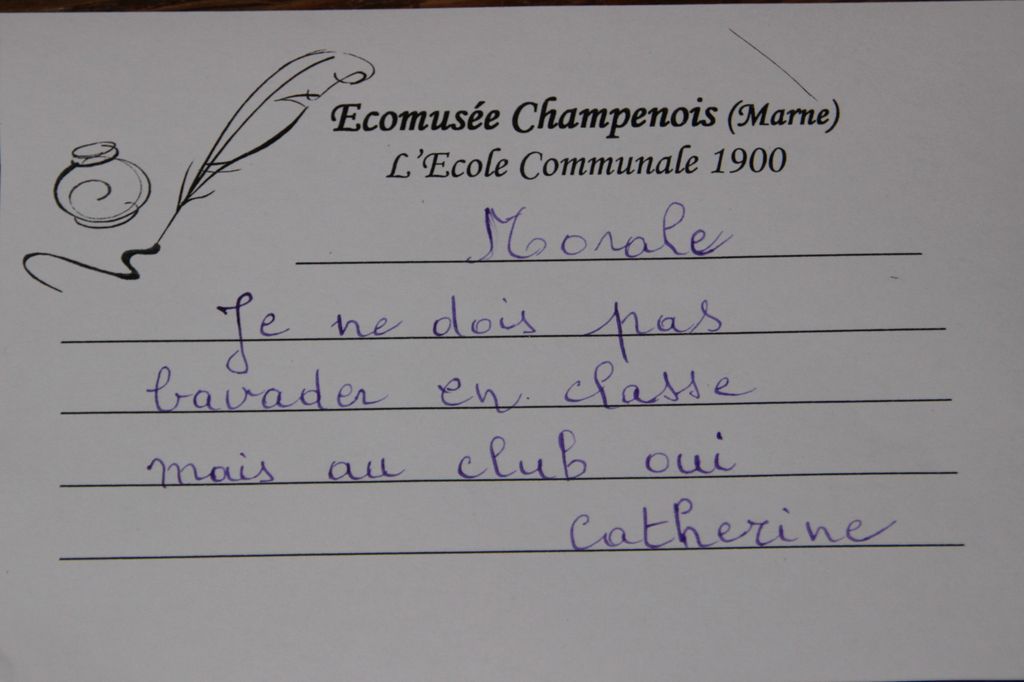 Ecomusée Champenois (Marne)
L'Ecole Communale 1900
Morale
Je ne dois pas
bavader en classe
mais au club oui
Catherine